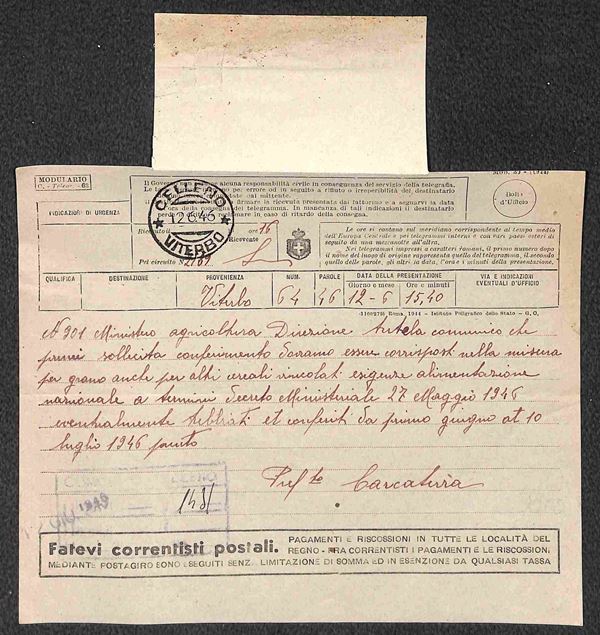 MODULARIO
C. - Telegr. - 63
Mod. 63 - (1944)
INDICAZIONI DI URGENZA
Il Governo non assume alcuna responsabilità civile in conseguenza del servizio della telegrafia.
Le tasse riscosse in meno per errore od in seguito a rifiuto o irreperibilità del destinatario
state dal mittente.
firmare la ricevuta presentata dal fattorino e a segnarvi la data
ora della consegna del telegramma. In mancanza di tali indicazioni il destinatario
perde reclamare in caso di ritardo della consegna.
Bollo
d'Ufficio
CELLENO
12.6.46
VITERBO
Ricevuto il
ore 16
Pel circuito N. 2787
Ricevente
Le ore si contano sul meridiano corrispondente al tempo medio
dell'Europa Centrale e pei telegrammi interni e con vari paesi esteri di
seguito da una mezzanotte all'altra.
Nei telegrammi impressi a caratteri romani, il primo numero dopo
il nome del luogo di origine rappresenta quello del telegramma, il secondo
quello delle parole, gli altri la data, l'ora e i minuti della presentazione.
QUALIFICA DESTINAZIONE PROVENIENZA NUM. PAROLE DATA DELLA PRESENTAZIONE VIA E INDICAZIONI
EVENTUALI D'UFFICIO
Giorno e mese Ore e minuti
Vitubo 64 46 12-6 15,40
Roma, 1944 - Istituto Poligrafico dello Stato - G. C.
N 301 Ministero agricoltura Direzione tutela comunico che
premi sollecito conferimento davanno essere corrispost nella misura
per grano anche per altri cereali vincolati esigenze alimentazione
nazionale a termini decreto Ministeriale 27 Maggio 1946
eventualmente trebbiati et conferiti da primo giugno at 10
luglio 1946 punto
Pref to Carcaterra
1431
Fatevi correntisti postali. PAGAMENTI E RISCOSSIONI IN TUTTE LE LOCALITÀ DEL
REGNO - FRA CORRENTISTI I PAGAMENTI E LE RISCOSSIONI
MEDIANTE POSTAGIRO SONO ESEGUITI SENZA LIMITAZIONE DI SOMMA ED IN ESENZIONE DA QUALSIASI TASSA